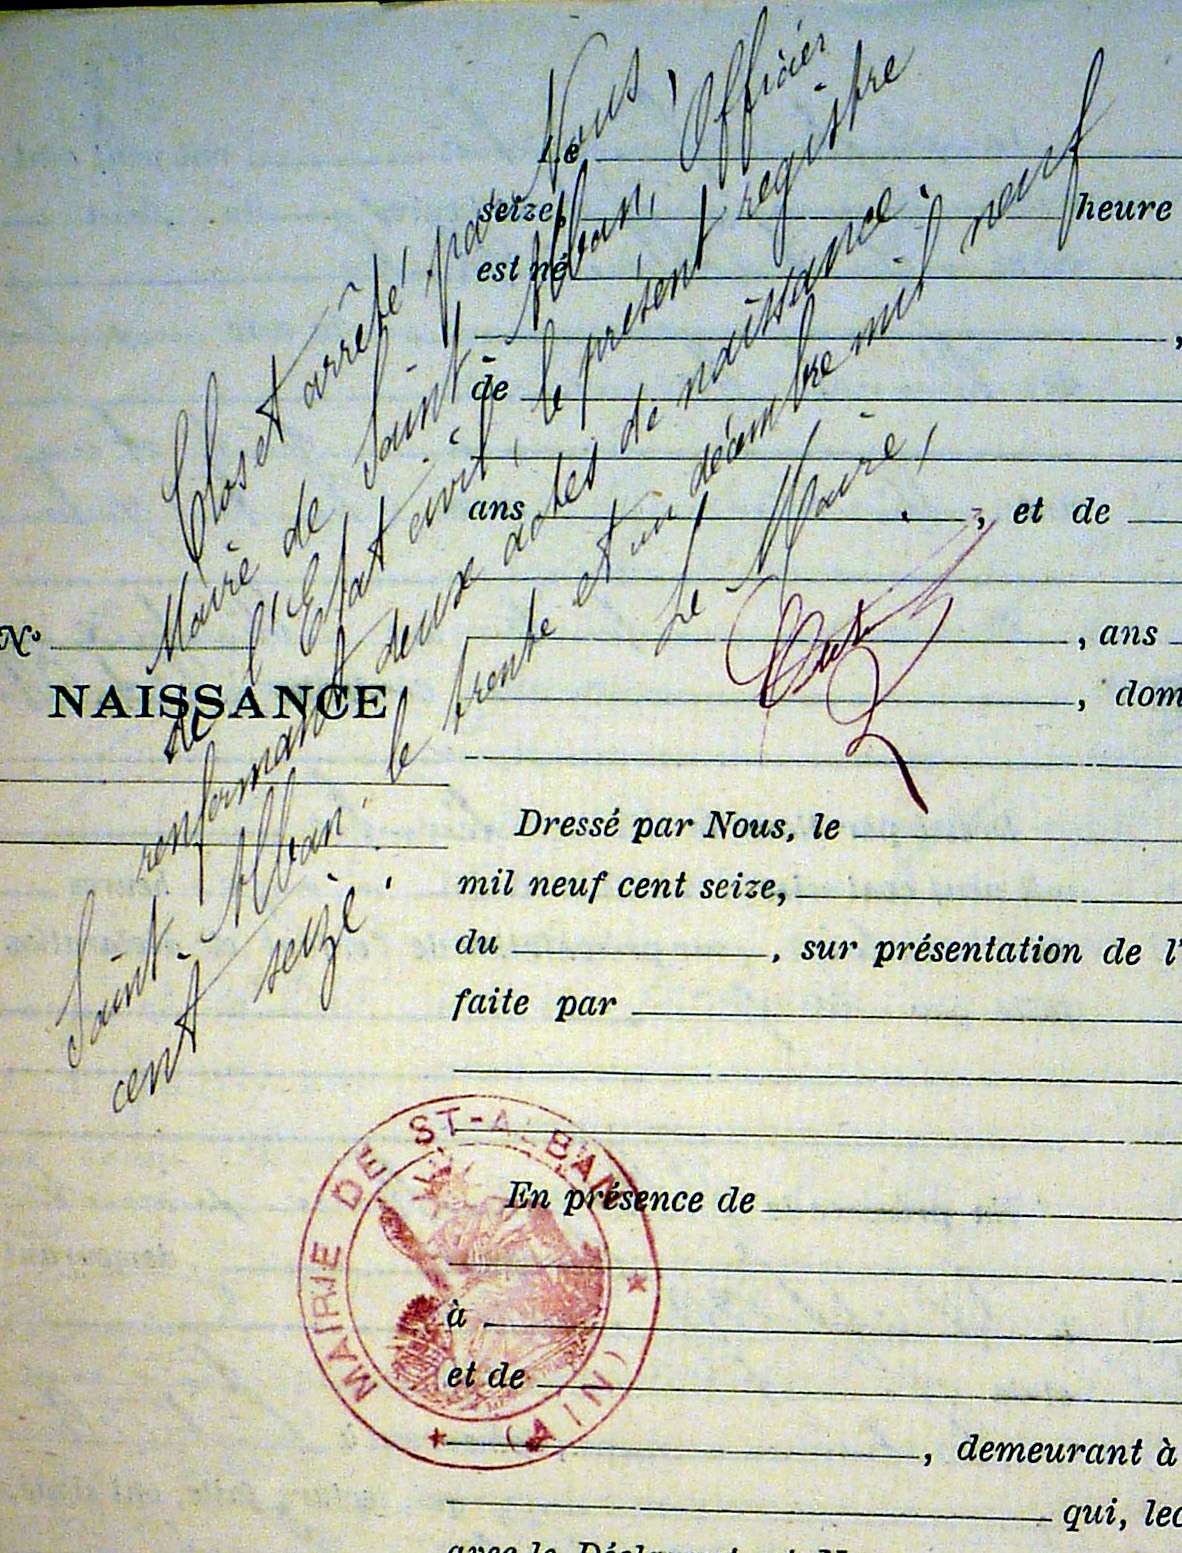 Clos et arrêté par Nous,
Maire de Saint-Alban, Officier
de l'Etat civil, le présent registre
renfermant deux actes de naissance.
Saint-Alban le trente et un décembre mil neuf
cent seize.
Le Maire,
Le
seize, heure
est né
,
de
ans , et de
N°
, ans
NAISSANCE
, dom
Dressé par Nous, le
mil neuf cent seize,
du , sur présentation de l'
faite par
MAIRIE DE ST-ALBAN (AIN)
En présence de
à
et de
, demeurant à
qui, lec